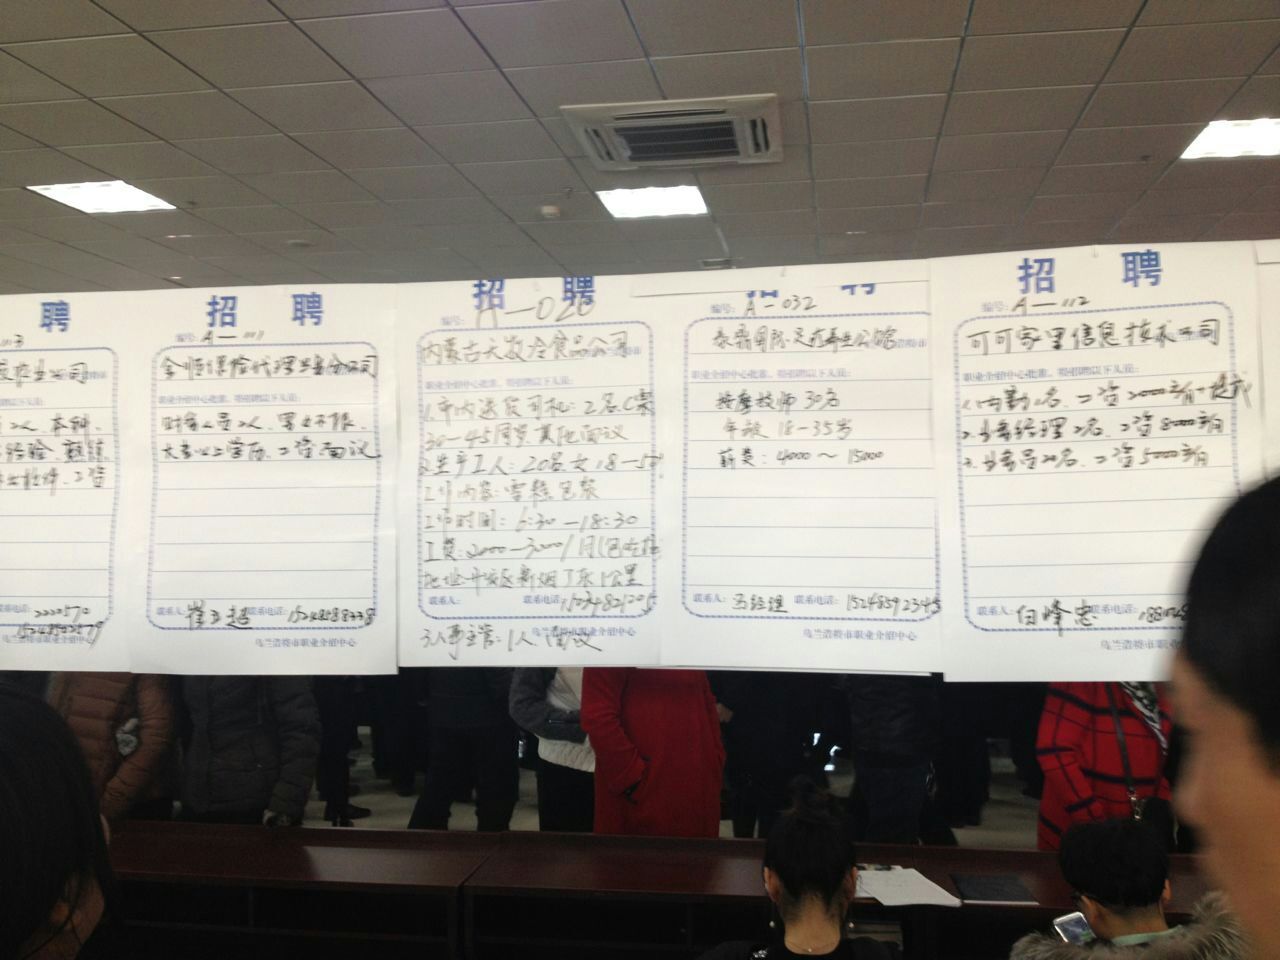 聘
本科
经验
2220570
招 聘
编号: A—111
职业介绍中心批准，特招聘以下人员:
大专以上学历、工资面议
联系人:
联系电话:
乌兰浩特市职业介绍中心
招 聘
编号: A—020
内蒙古天牧冷食品公司
职业介绍中心批准，特招聘以下人员:
1.市内送货司机: 2名C票
30—45周岁 其他面议
2.生产工人: 20名女18—5
工作内容: 雪糕包装
工作时间: 6:30—18:30
工资: 2000—3000/月(包吃
地址: 开发区新烟厂东1公里
联系人:
联系电话:
3.人事主管: 1人 面议
乌兰浩特市职业介绍中心
招 聘
编号: A—032
足疗养生公馆
职业介绍中心批准，特招聘以下人员:
按摩技师 30名
年龄 18—35岁
薪资: 4000～15000
联系人: 马经理
联系电话: 15248592345
乌兰浩特市职业介绍中心
招 聘
编号: A—112
可可家里信息技术公司
职业介绍中心批准，特招聘以下人员:
1.内勤
2.业务经理2名、工资8000
3.业务员20名、工资5000
联系人: 白峰忠
联系电话:
乌兰浩特市职